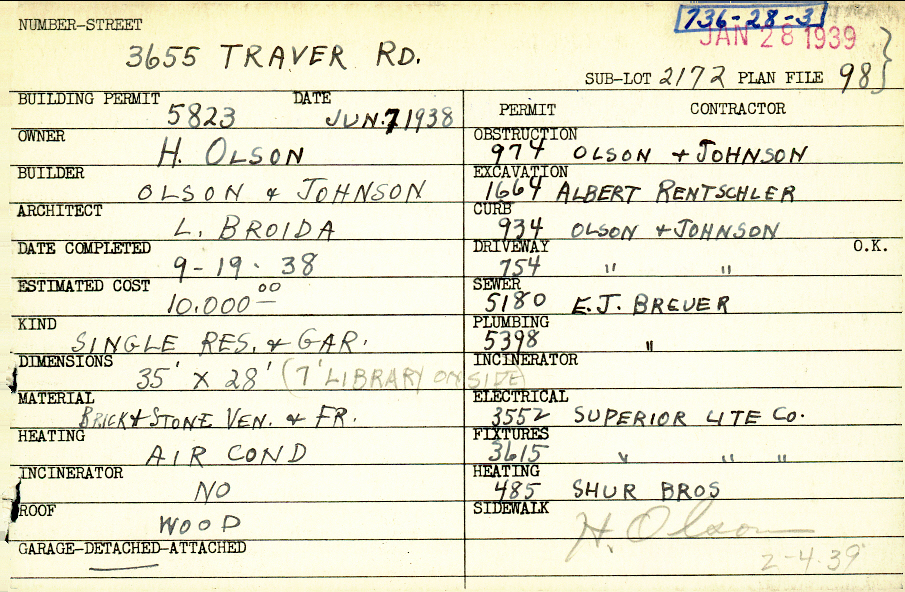 NUMBER-STREET
736-28-3
JAN 28 1939
3655 TRAVER RD.
SUB-LOT 2172 PLAN FILE 98
BUILDING PERMIT DATE
5823 JUN. 7 1938
OWNER
H. OLSON
BUILDER
OLSON & JOHNSON
ARCHITECT
L. BROIDA
DATE COMPLETED
9-19-38
ESTIMATED COST
10.000 00
KIND
SINGLE RES. & GAR.
DIMENSIONS
35' X 28' (7' LIBRARY ON SIDE)
MATERIAL
BRICK & STONE VEN. & FR.
HEATING
AIR COND
INCINERATOR
NO
ROOF
WOOD
GARAGE-DETACHED-ATTACHED
PERMIT CONTRACTOR
OBSTRUCTION
974 OLSON & JOHNSON
EXCAVATION
1664 ALBERT RENTSCHLER
CURB
934 OLSON & JOHNSON
DRIVEWAY O.K.
754 " "
SEWER
5180 E.J. BREUER
PLUMBING
5398 "
INCINERATOR
ELECTRICAL
3552 SUPERIOR LITE CO.
FIXTURES
3615 " " "
HEATING
485 SHUR BROS
SIDEWALK
H. Olson
2-4-39